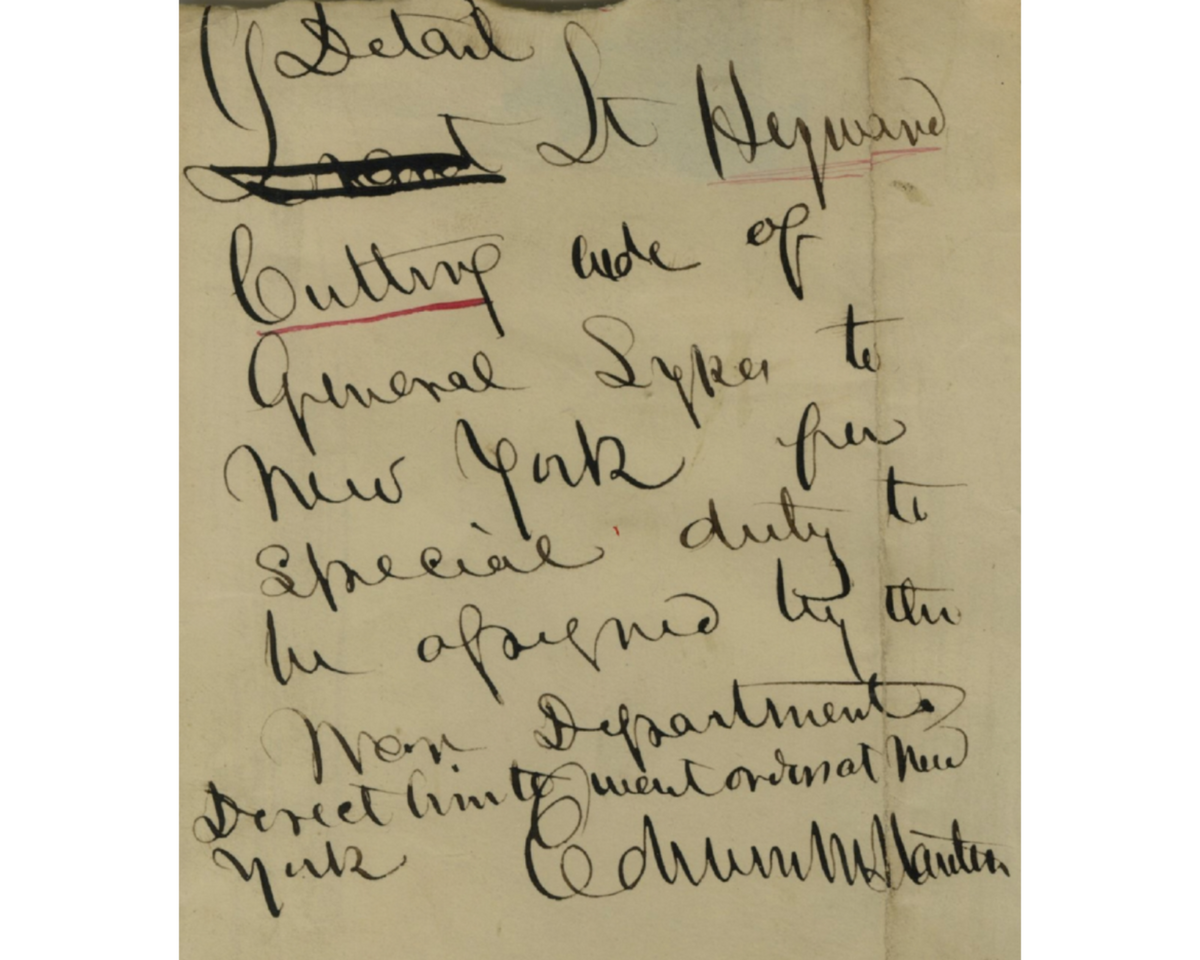 Detail
Lt Heyward
Cutting aide of
General Sykes to
New York for
special duty to
be assigned by the
War Department
Direct him to await orders at New
York Edwin M Stanton